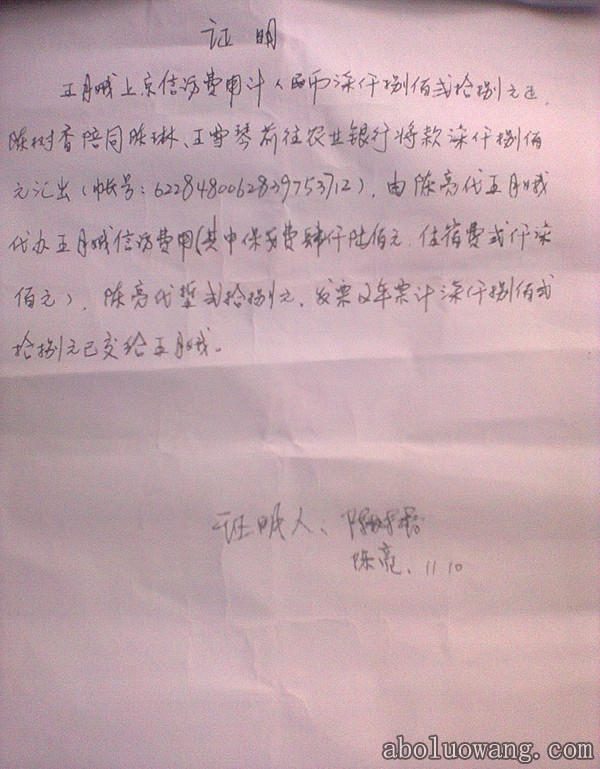 证 明
五月娥上京信访费用计人民币柒仟捌佰贰拾捌元正,
陈树香陪同陈琳、王雪琴前往农业银行将款柒仟捌佰
元汇出(帐号:6228480062839753712),由陈亮代五月娥
代办五月娥信访费用(其中保安费肆仟陆佰元,住宿费贰仟柒
佰元),陈亮代垫贰拾捌元,发票及车票计柒仟捌佰贰
拾捌元已交给五月娥。
证明人:陈树香
陈亮、11 10
aboluowang.com